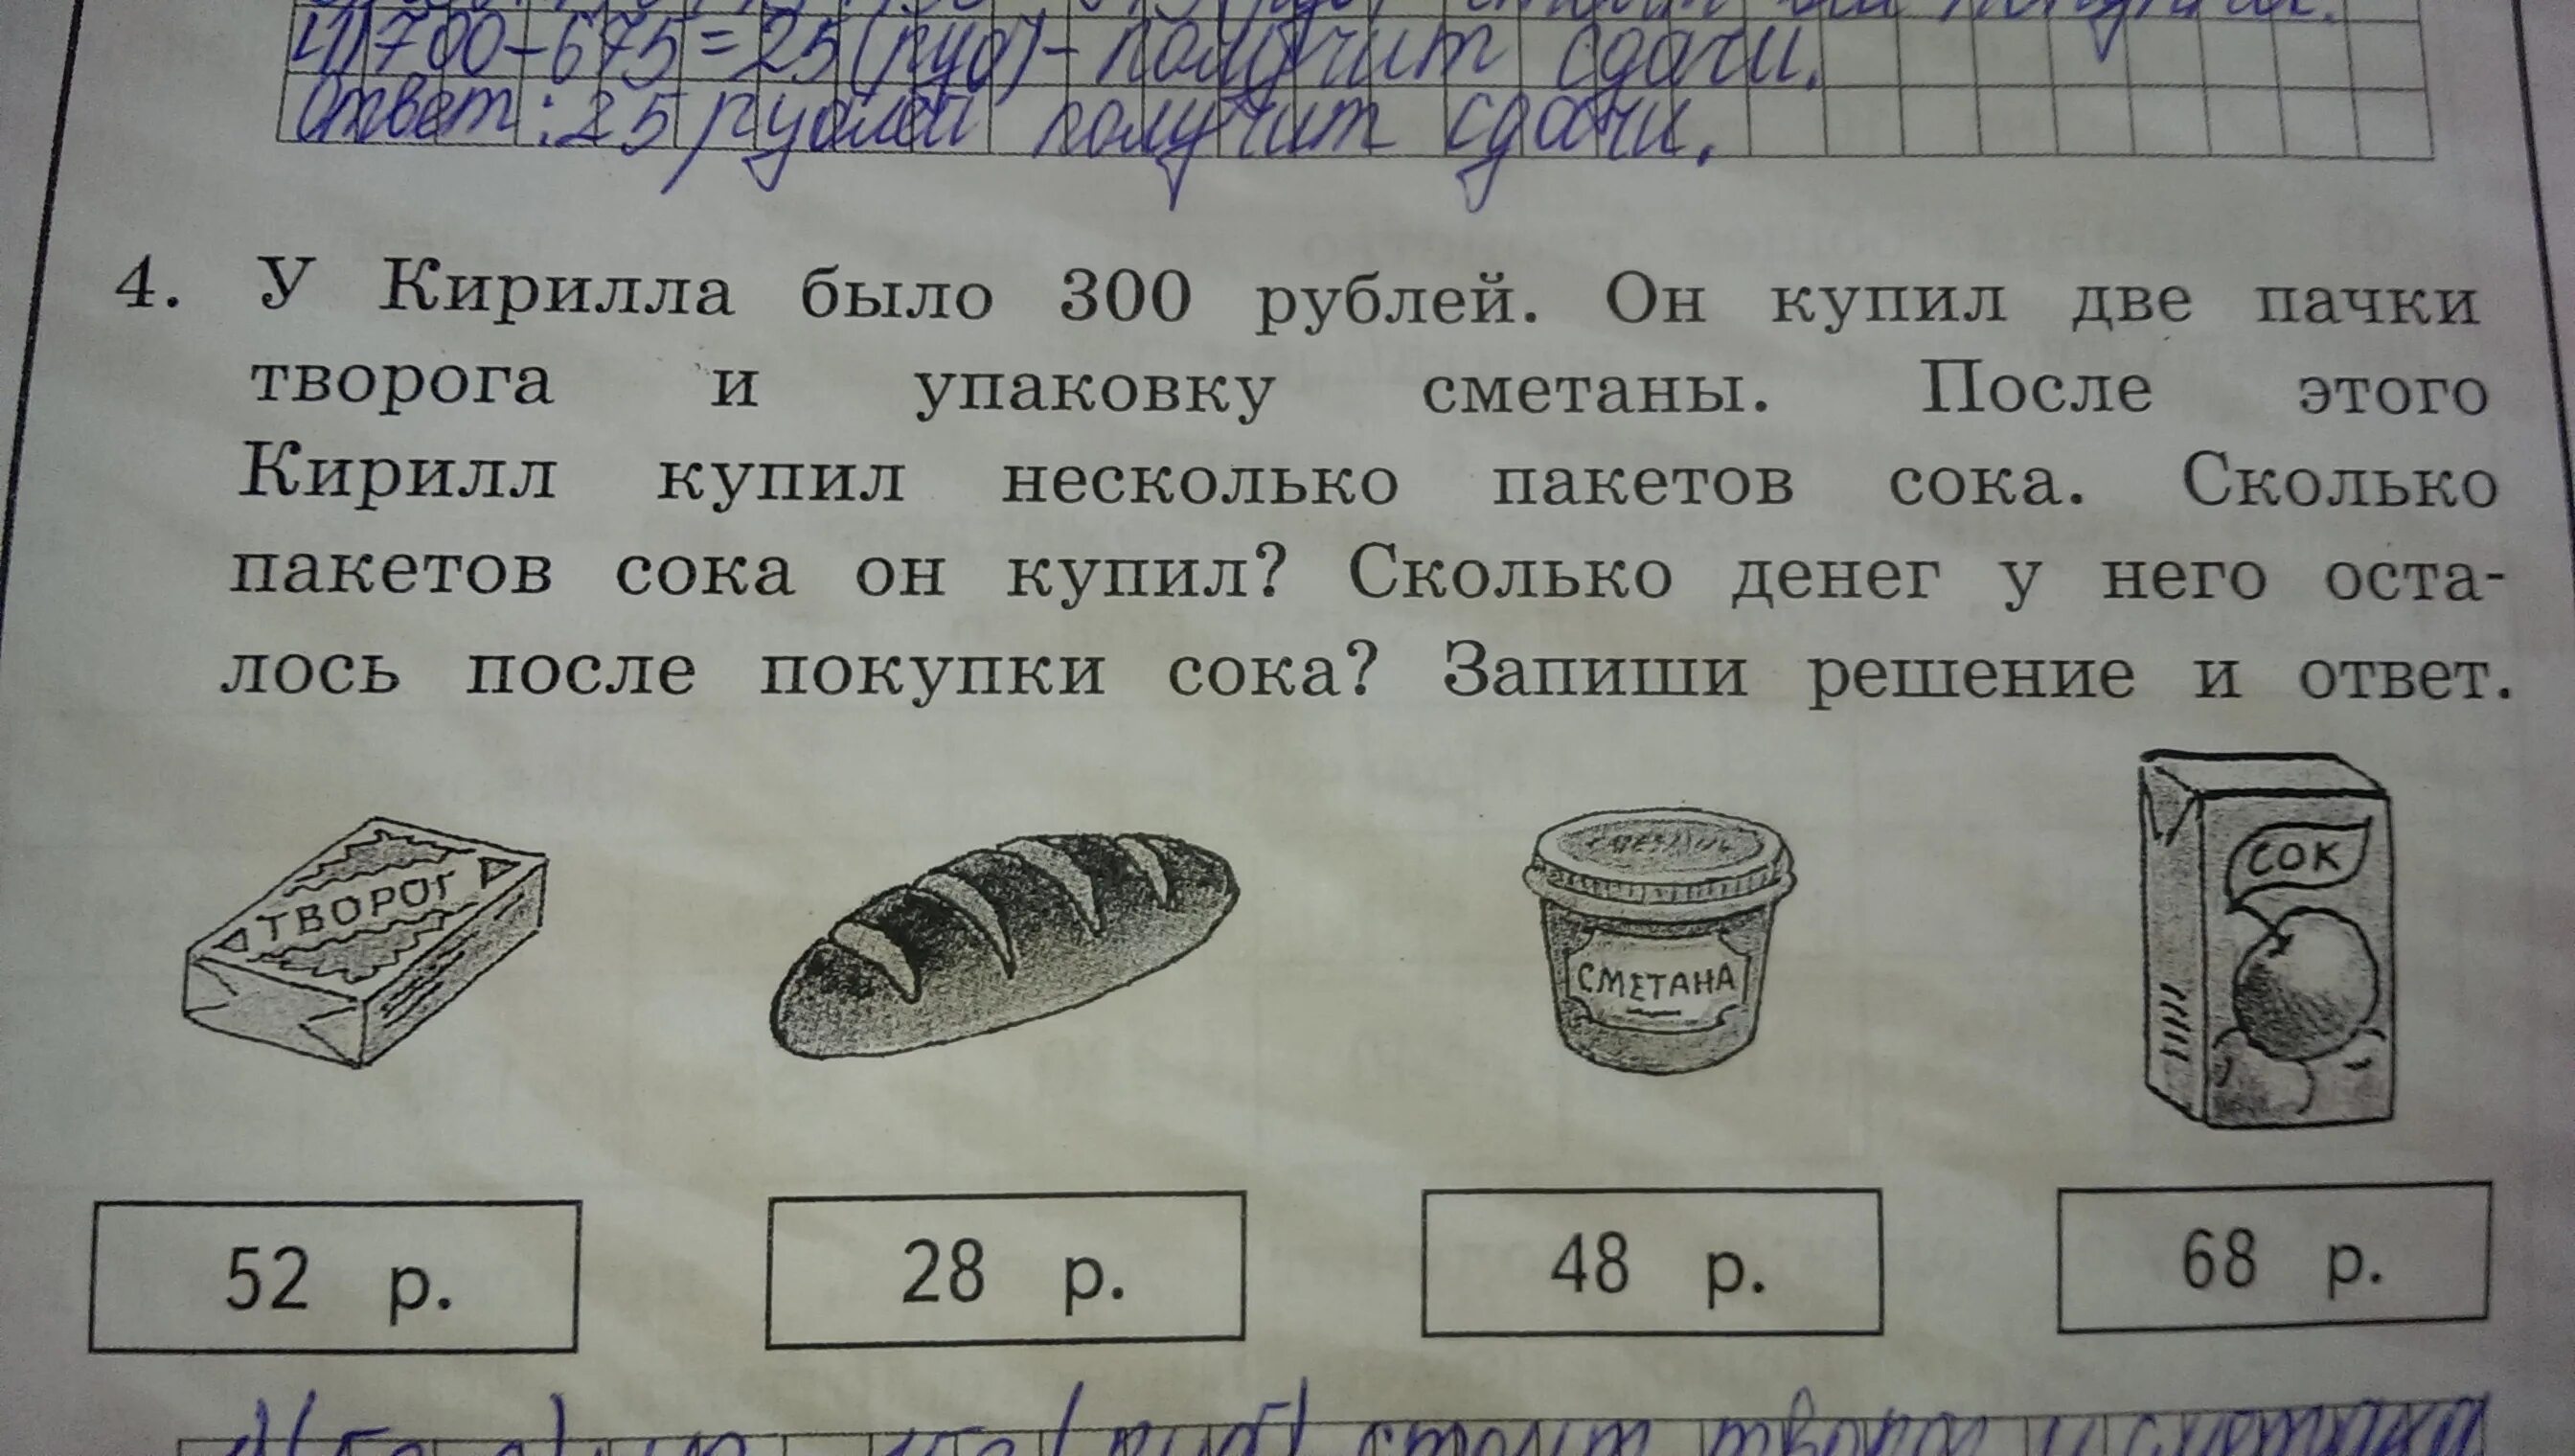 4) 700 - 675 = 25 (руб) - получит сдачи.
Ответ: 25 рублей получит сдачи.
4. У Кирилла было 300 рублей. Он купил две пачки
творога и упаковку сметаны. После этого
Кирилл купил несколько пакетов сока. Сколько
пакетов сока он купил? Сколько денег у него оста-
лось после покупки сока? Запиши решение и ответ.
ТВОРОГ
СМЕТАНА
СОК
52 р.
28 р.
48 р.
68 р.
(руб) стоит творог и сметана